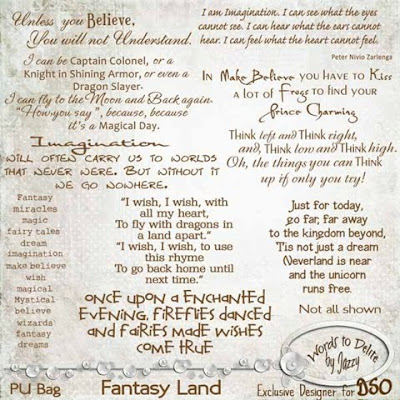 Unless you Believe,
You will not Understand.
I am Imagination. I can see what the eyes
cannot see. I can hear what the ears cannot
hear. I can feel what the heart cannot feel.
Peter Nivio Zarlenga
I can be Captain Colonel, or a
Knight in Shining Armor, or even a
Dragon Slayer.
I can fly to the Moon and Back again.
"How you say", because, because
it's a Magical Day.
In Make Believe you Have to Kiss
a lot of Frogs to find your
Prince Charming
Imagination
will often carry us to worlds
that never were. But without it
we go nowhere.
Think left and Think right,
and, Think low and Think high.
Oh, the things you can Think
up if only you try!
Fantasy
miracles
magic
fairy tales
dream
imagination
make believe
wish
magical
Mystical
believe
wizards
fantasy
dreams
"I wish, I wish, with
all my heart,
To fly with dragons in
a land apart."
"I wish, I wish, to use
this rhyme
To go back home until
next time."
Just for today,
go far, far away
to the kingdom beyond,
Tis not just a dream
Neverland is near
and the unicorn
runs free.
Once upon a enchanted
evening, fireflies danced
and fairies made wishes
come true
Not all shown
Words to Delite
by Jazzy
PU Bag
Fantasy Land
Exclusive Designer for DSO